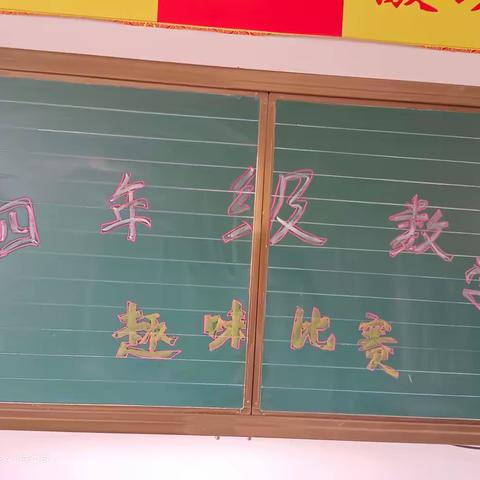 四年级数学
趣味比赛